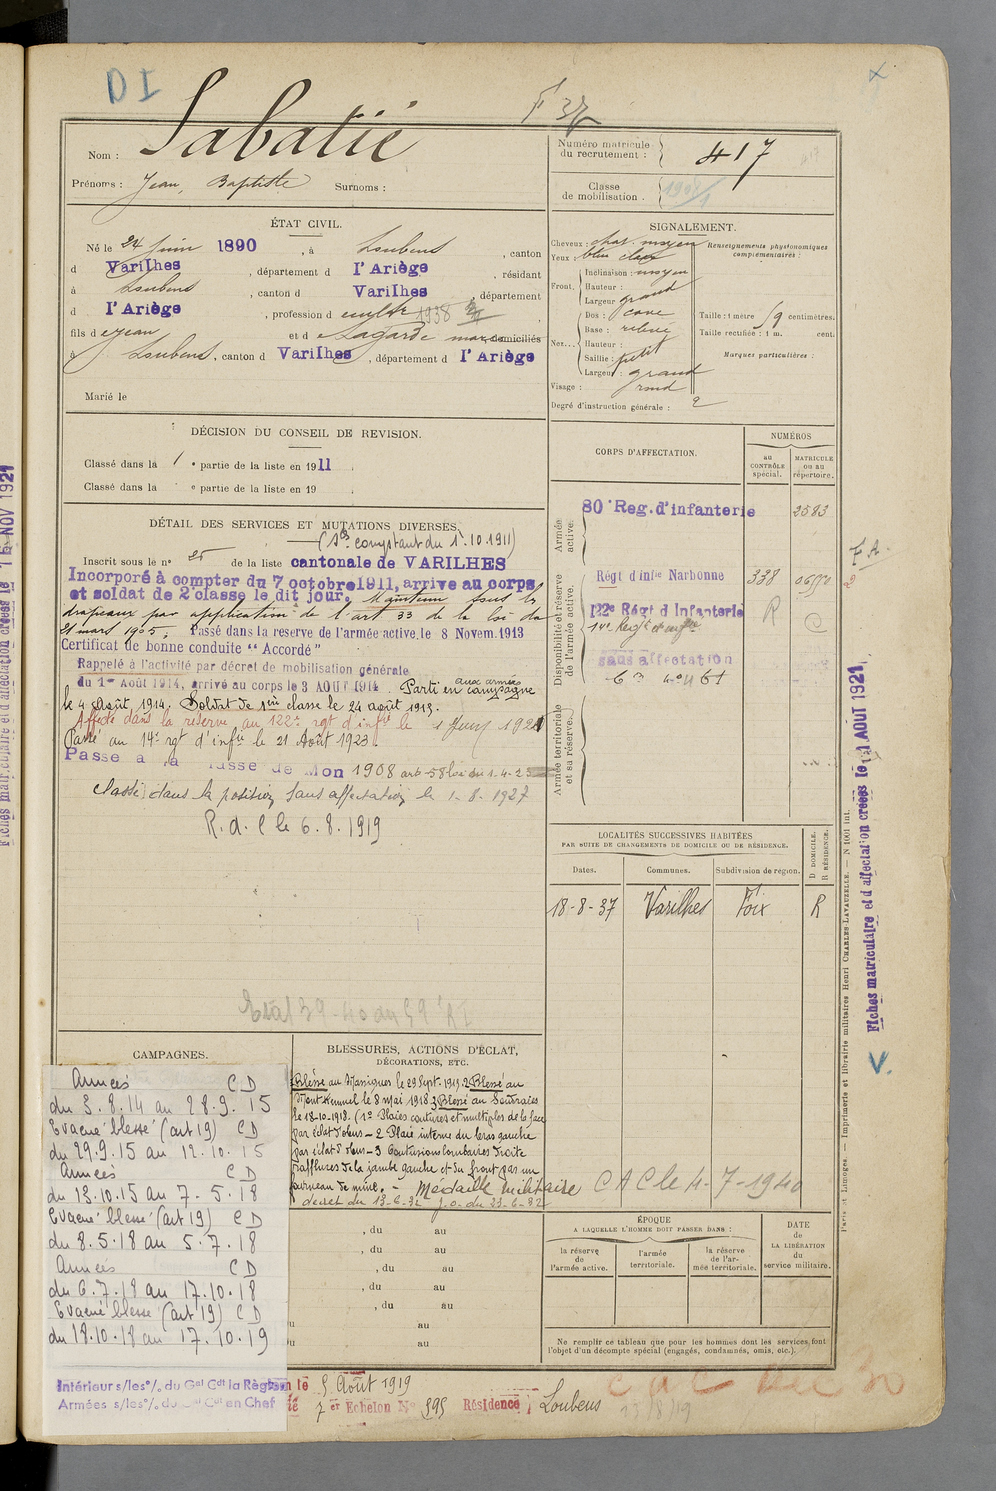 D I
Sabatié
Nom :
Prénoms : Jean, Baptiste Surnoms :
Numéro matricule
du recrutement :
417
Classe
de mobilisation .
ÉTAT CIVIL.
Né le 24 Juin 1890 , à Loubens , canton
d Varilhes , département d l'Ariège , résidant
à Loubens , canton d Varilhes , département
d l'Ariège , profession d 1938
fils d e Jean et d e Lagarde domiciliés
à Loubens , canton d Varilhes , département d l'Ariège
Marié le
SIGNALEMENT.
Cheveux : chat. moyen
Yeux : bleu clair
Renseignements physionomiques
complémentaires :
Front.
Inclinaison : moyen
Hauteur :
Largeur grand
Nez...
Dos : cave
Base : relevé
Hauteur :
Saillie : petit
Largeur : grand
Visage : rond
Taille : 1 mètre 59 centimètres.
Taille rectifiée : 1 m. cent.
Marques particulières :
Degré d'instruction générale : 2
DÉCISION DU CONSEIL DE REVISION.
Classé dans la 1 e partie de la liste en 1911
Classé dans la e partie de la liste en 19 .
CORPS D'AFFECTATION.
NUMÉROS
au
CONTRÔLE
spécial.
MATRICULE
ou au
répertoire.
Armée
active.
80e Reg. d'infanterie 2583
Disponibilité et réserve
de l'armée active.
Régt d'infie Narbonne 338
122e Régt d Infanterie R
14e Regt d'infie
sans affectation
Armée territoriale
et sa réserve.
DÉTAIL DES SERVICES ET MUTATIONS DIVERSES.
Inscrit sous le n° 25 de la liste cantonale de VARILHES
Incorporé à compter du 7 octobre 1911, arrive au corps
et soldat de 2e classe le dit jour. Maintenu sous les
drapeaux par application de l'art 33 de la loi du
21 mars 1905. Passé dans la reserve de l'armée active, le 8 Novem. 1913
Certificat de bonne conduite "Accordé"
Rappelé à l'activité par décret de mobilisation générale
du 1er Août 1914, arrivé au corps le 3 AOUT 1914. Parti aux armées en campagne
le 4 Août 1914. Soldat de 1ère classe le 24 août 1915.
Affecté dans la réserve au 122e rgt d'infie le 1 Juin 1921
Passé au 14e rgt d'infie le 21 Août 1923.
Passe à la classe de Mob 1908 art 58 loi du 1-4-23
Classé dans la position sans affectation le 1-8-1927
R.d.l le 6.8.1919
LOCALITÉS SUCCESSIVES HABITÉES
PAR SUITE DE CHANGEMENTS DE DOMICILE OU DE RÉSIDENCE.
Dates. Communes. Subdivision de région.
D DOMICILE.
R RÉSIDENCE.
18-8-37 Varilhes Foix R
CAMPAGNES.
Armées C D
du 3.8.14 au 28.9.15
Evacué blessé (art 19) C D
du 29.9.15 au 12.10.15
Armées C D
du 13.10.15 au 7.5.18
Evacué blessé (art 19) C D
du 8.5.18 au 5.7.18
Armées C D
du 6.7.18 au 17.10.18
Evacué blessé (art 19) C D
du 18.10.18 au 17.10.19
Intérieur s/les o/. du Gal Cdt la Région
Armées s/les o/. du Gal Cdt en Chef
BLESSURES, ACTIONS D'ÉCLAT,
DÉCORATIONS, ETC.
Blessé au Massiques le 29 Sept. 1915 2 Blessé au
Mont Kemmel le 8 mai 1918 3 Blessé au
le 18-10-1918. (1° Plaies contuses et multiples de la face
par éclat d'obus - 2 Plaie interne du bras gauche
par éclat d'obus - 3 Contusions lombaires droite
éraflures de la jambe gauche et du front par un
fourneau de mine. - Médaille militaire
decret du 13-6-32 J.O. du 23-6-32
C A C le 4-7-1940
, du au
, du au
, du au
, du au
, du au
u au
au
ÉPOQUE
A LAQUELLE L'HOMME DOIT PASSER DANS :
la réserve
de
l'armée active.
l'armée
territoriale.
la réserve
de l'ar-
mée territoriale.
DATE
de
LA LIBÉRATION
du
service militaire.
Ne remplir ce tableau que pour les hommes dont les services font
l'objet d'un décompte spécial (engagés, condamnés, omis, etc.).
le 5 Août 1919
7 er Echelon N° 595 Résidence Loubens
Fiches matriculaire et d'affectation créées le 11 AOUT 1921
V.
Paris et Limoges. — Imprimerie et librairie militaires Henri CHARLES-LAVAUZELLE. — N 1001 int.
Fiches matriculaire et d'affectation créées le 15 NOV 1921